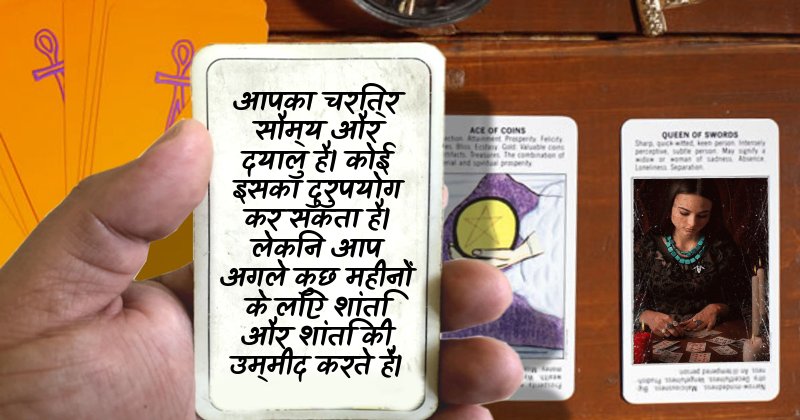 आपका चरित्र
सौम्य और
दयालु है। कोई
इसका दुरुपयोग
कर सकता है।
लेकिन आप
अगले कुछ महीनों
के लिए शांति
और शांति की
उम्मीद करते है।
ACE OF COINS
Attainment. Prosperity. Felicity.
Bliss. Ecstasy. Gold. Valuable coins
Treasures. The combination of
and spiritual prosperity.
QUEEN OF SWORDS
Sharp, quick-witted, keen person. Intensely
perceptive, subtle person. May signify a
widow or woman of sadness. Absence.
Loneliness. Separation.